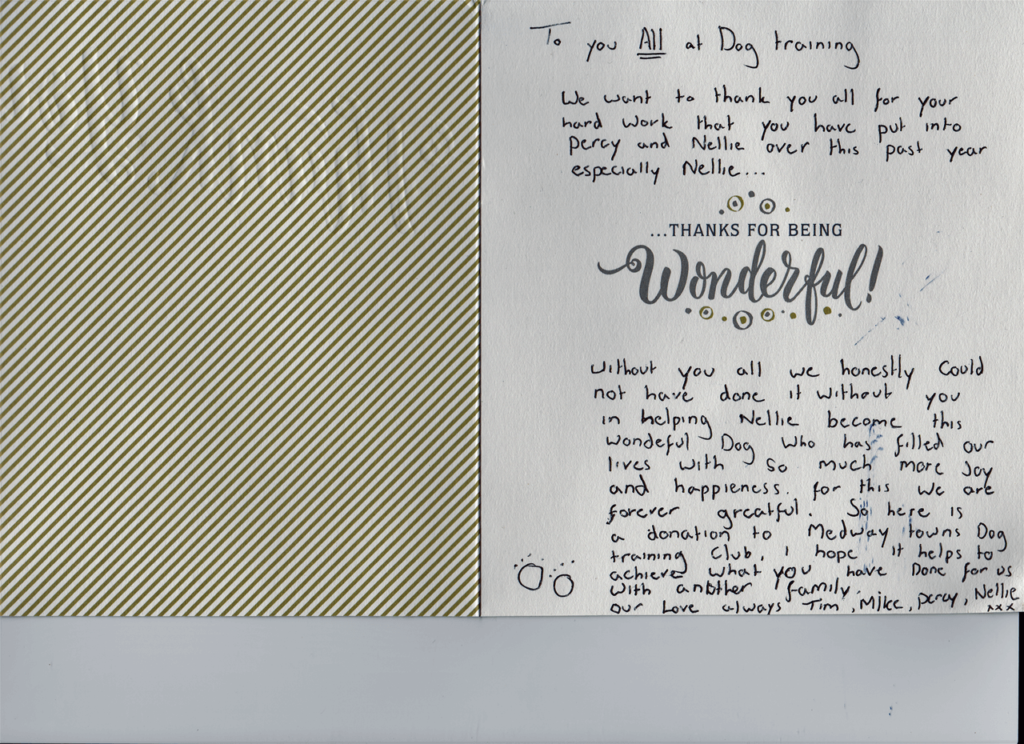 To you All at Dog training
We want to thank you all for your
hard work that you have put into
Percy and Nellie over this past year
especially Nellie...
...THANKS FOR BEING
Wonderful!
Without you all we honestly Could
not have done it without you
in helping Nellie become this
wondeful Dog who has filled our
lives with so much more Joy
and happieness. for this we are
forever greatful. So here is
a donation to Medway towns Dog
training Club, I hope it helps to
achieve what you have Done for us
with another family.
our Love always Tim, Mike, Percy, Nellie
xxx